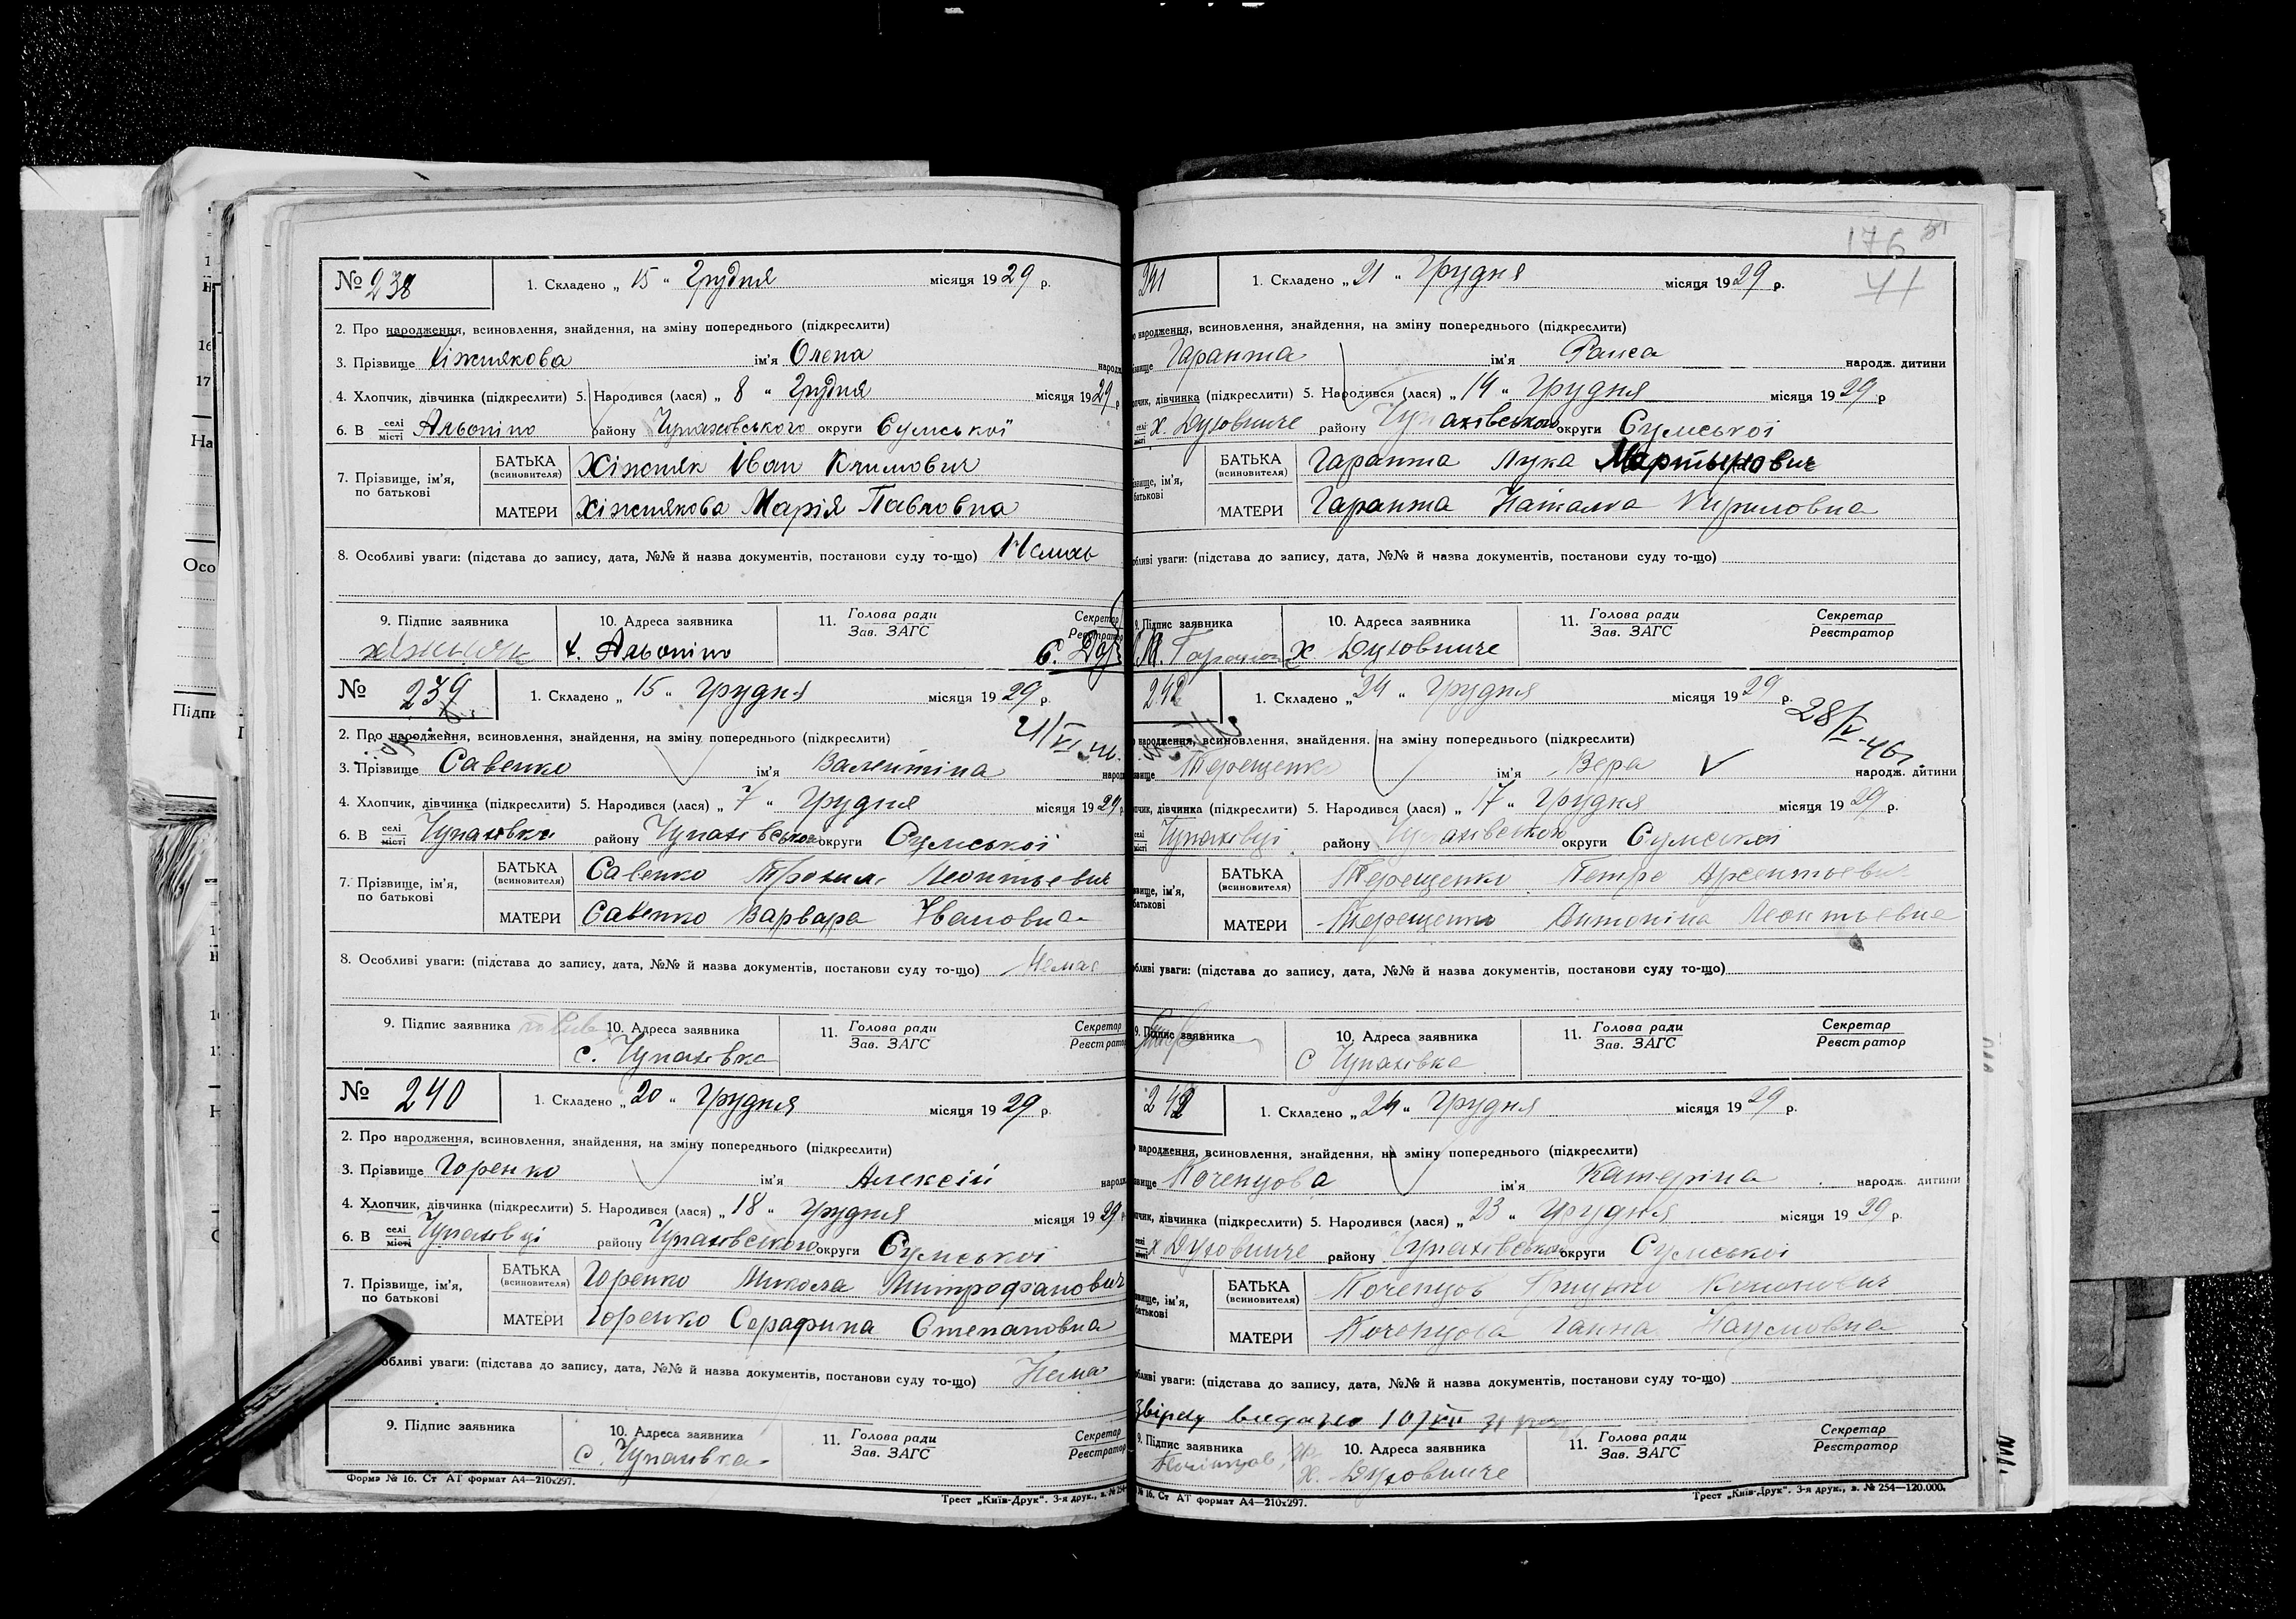 № 238
1. Складено „ 15 " Грудня місяця 1929 р.
2. Про народження, всиновлення, знайдення, на зміну попереднього (підкреслити)
3. Прізвище Хіжнякова ім'я Олена народ
4. Хлопчик, дівчинка (підкреслити) 5. Народився (лася) „ 8 " Грудня місяця 1929 р
6. В селі місті району Чупаховського округи Сумської
7. Прізвище, ім'я, по батькові
БАТЬКА (всиновителя) Хіжняк Іван Климович
МАТЕРИ Хіжнякова Марія Павловна
8. Особливі уваги: (підстава до запису, дата, №№ й назва документів, постанови суду то-що) Немає
9. Підпис заявника 10. Адреса заявника 11. Голова ради Зав. ЗАГС Секретар Реєстратор
№ 239
1. Складено „ 15 " Грудня місяця 1929 р.
2. Про народження, всиновлення, знайдення, на зміну попереднього (підкреслити)
3. Прізвище Савенко ім'я Валентіна народ
4. Хлопчик, дівчинка (підкреслити) 5. Народився (лася) „ 7 " Грудня місяця 1929 р.
6. В селі місті Чупахівка району Чупахівського округи Сумської
7. Прізвище, ім'я, по батькові
БАТЬКА (всиновителя) Савенко Трохим Леонтьевич
МАТЕРИ Савенко Варвара Івановна
8. Особливі уваги: (підстава до запису, дата, №№ й назва документів, постанови суду то-що) Немає
9. Підпис заявника 10. Адреса заявника 11. Голова ради Зав. ЗАГС Секретар Реєстратор
с. Чупахівка
№ 240
1. Складено „ 20 " Грудня місяця 1929 р.
2. Про народження, всиновлення, знайдення, на зміну попереднього (підкреслити)
3. Прізвище Горенко ім'я Алексій народ
4. Хлопчик, дівчинка (підкреслити) 5. Народився (лася) „ 18 " Грудня місяця 1929 р
6. В селі місті Чупахівці району Чупахівського округи Сумської
7. Прізвище, ім'я, по батькові
БАТЬКА (всиновителя) Горенко Микола Митрофанович
МАТЕРИ Горенко Серафина Степановна
обливі уваги: (підстава до запису, дата, №№ й назва документів, постанови суду то-що) Нема
9. Підпис заявника 10. Адреса заявника 11. Голова ради Зав. ЗАГС Секретар Реєстратор
с. Чупахівка
Форма № 16. Ст АТ формат А4—210х297.
Трест „Київ-Друк". 3-я друк., з. № 254
176
41
241
1. Складено „ 21 " Грудня місяця 1929 р.
народження, всиновлення, знайдення, на зміну попереднього (підкреслити)
Гаранжа ім'я Раиса народж. дитини
дівчинка (підкреслити) 5. Народився (лася) „ 14 " Грудня місяця 1929 р
селі х. Духовниче району Чупахівського округи Сумської
БАТЬКА (всиновителя) Гаранжа Лука Мартынович
МАТЕРИ Гаранжа Наталка Кириловна
уваги: (підстава до запису, дата, №№ й назва документів, постанови суду то-що)
9. Підпис заявника 10. Адреса заявника 11. Голова ради Зав. ЗАГС Секретар Реєстратор
х. Духовниче
242
1. Складено „ 24 " Грудня місяця 1929 р.
28/V-46г.
народження, всиновлення, знайдення, на зміну попереднього (підкреслити)
Терещенко ім'я Вера народж. дитини
дівчинка (підкреслити) 5. Народився (лася) „ 17 " Грудня місяця 1929 р.
селі Чупахівці району Чупахівського округи Сумської
БАТЬКА (всиновителя) Терещенко Петро Арсентьевич
МАТЕРИ Терещенко Антоніна Леонтьевна
уваги: (підстава до запису, дата, №№ й назва документів, постанови суду то-що)
9. Підпис заявника 10. Адреса заявника 11. Голова ради Зав. ЗАГС Секретар Реєстратор
с Чупахівка
1. Складено „ 24 " Грудня місяця 1929 р.
народження, всиновлення, знайдення, на зміну попереднього (підкреслити)
Коченцова ім'я Катеріна народж. дитини
дівчинка (підкреслити) 5. Народився (лася) „ 23 " Грудня місяця 1929 р.
х Духовниче району Чупахівського округи Сумської
БАТЬКА (всиновителя) Коченцов
МАТЕРИ Коченцова Ганна Наумовна
уваги: (підстава до запису, дата, №№ й назва документів, постанови суду то-що)
видано
9. Підпис заявника 10. Адреса заявника 11. Голова ради Зав. ЗАГС Секретар Реєстратор
х. Духовниче
№ 16. Ст АТ формат А4—210х297.
Трест „Київ-Друк". 3-я друк., з. № 254—120.000.